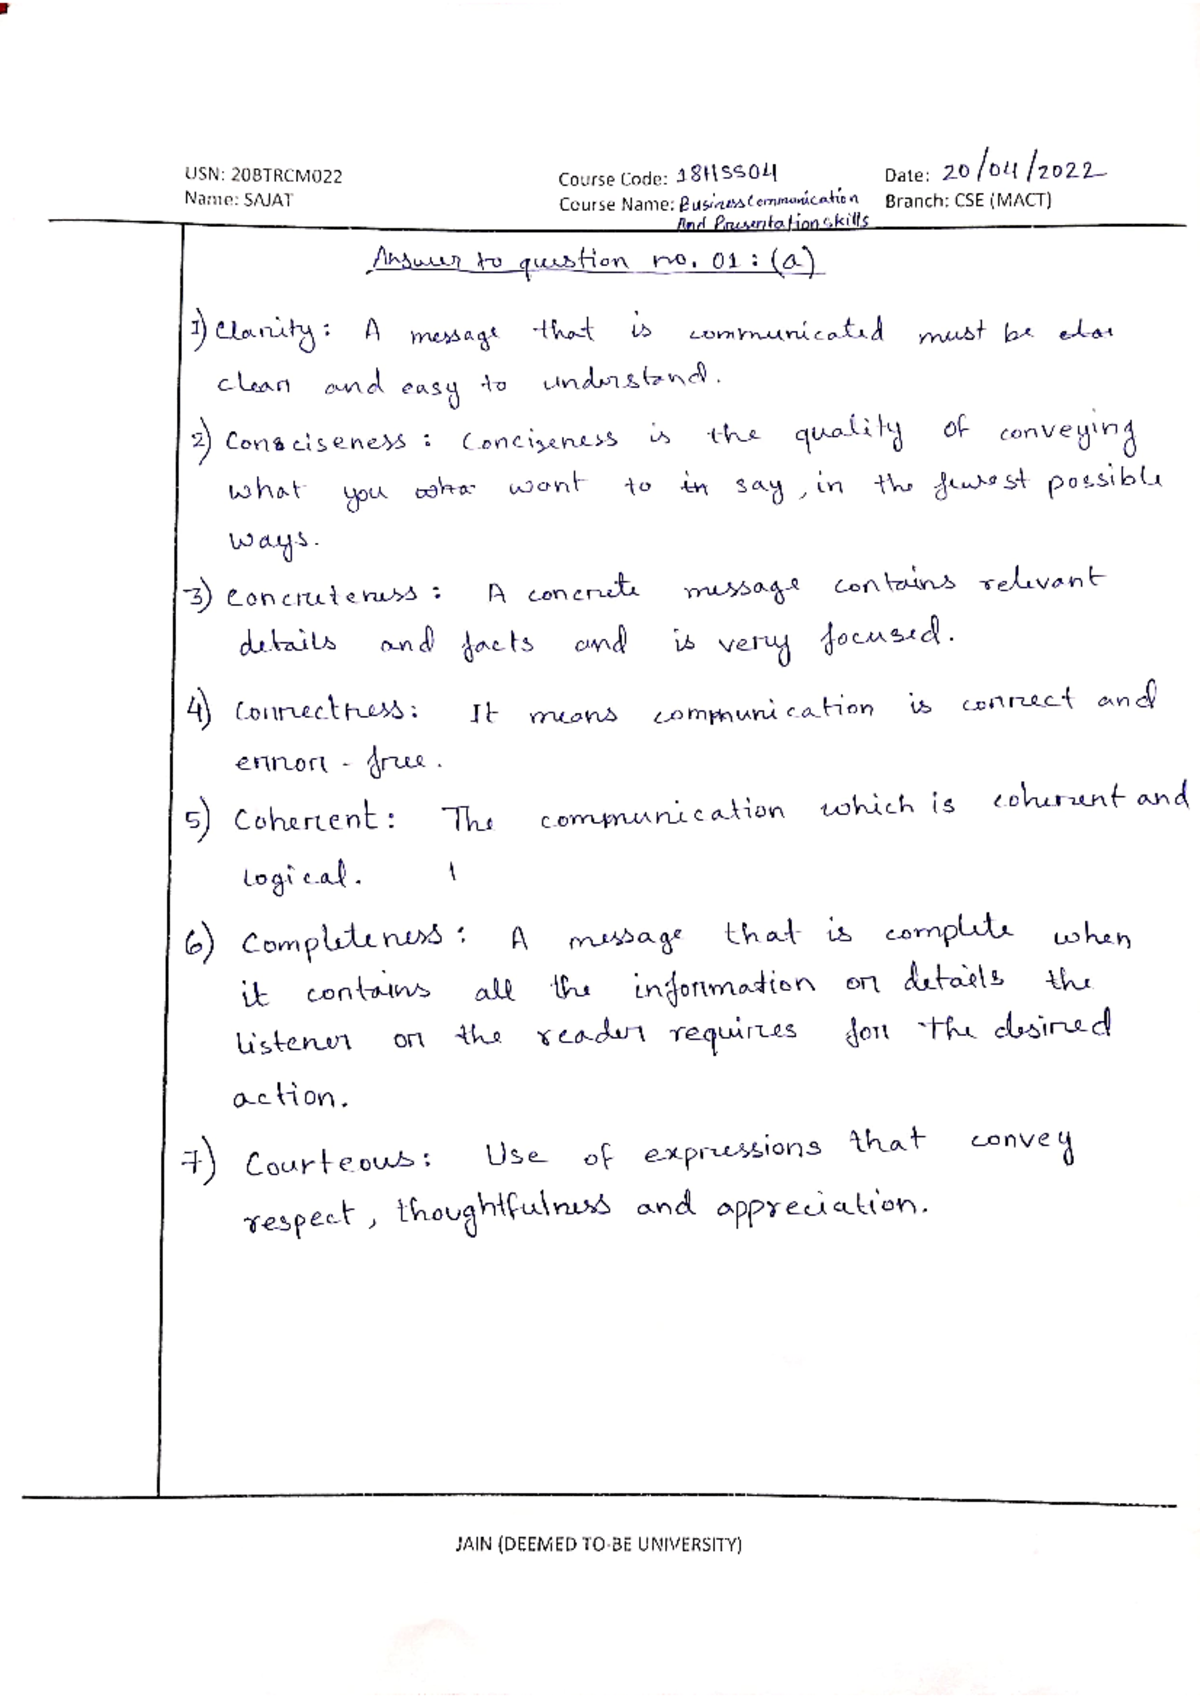 USN: 20BTRCM022 Course Code: 18HSS04 Date: 20/04/2022
Name: SAJAT Course Name: Business Communication Branch: CSE (MACT)
And Presentation skills
Answer to question no. 01 : (a)
1) Clarity: A message that is communicated must be
clear and easy to understand.
2) Consciseness : Conciseness is the quality of conveying
what you want to say, in the fewest possible
ways.
3) Concreteness : A concrete message contains relevant
details and facts and is very focused.
4) Correctness: It means communication is correct and
error - free.
5) Coherent: The communication which is coherent and
logical.
6) Completeness: A message that is complete when
it contains all the information or details the
listener or the reader requires for the desired
action.
7) Courteous: Use of expressions that convey
respect, thoughtfulness and appreciation.
JAIN (DEEMED TO-BE UNIVERSITY)